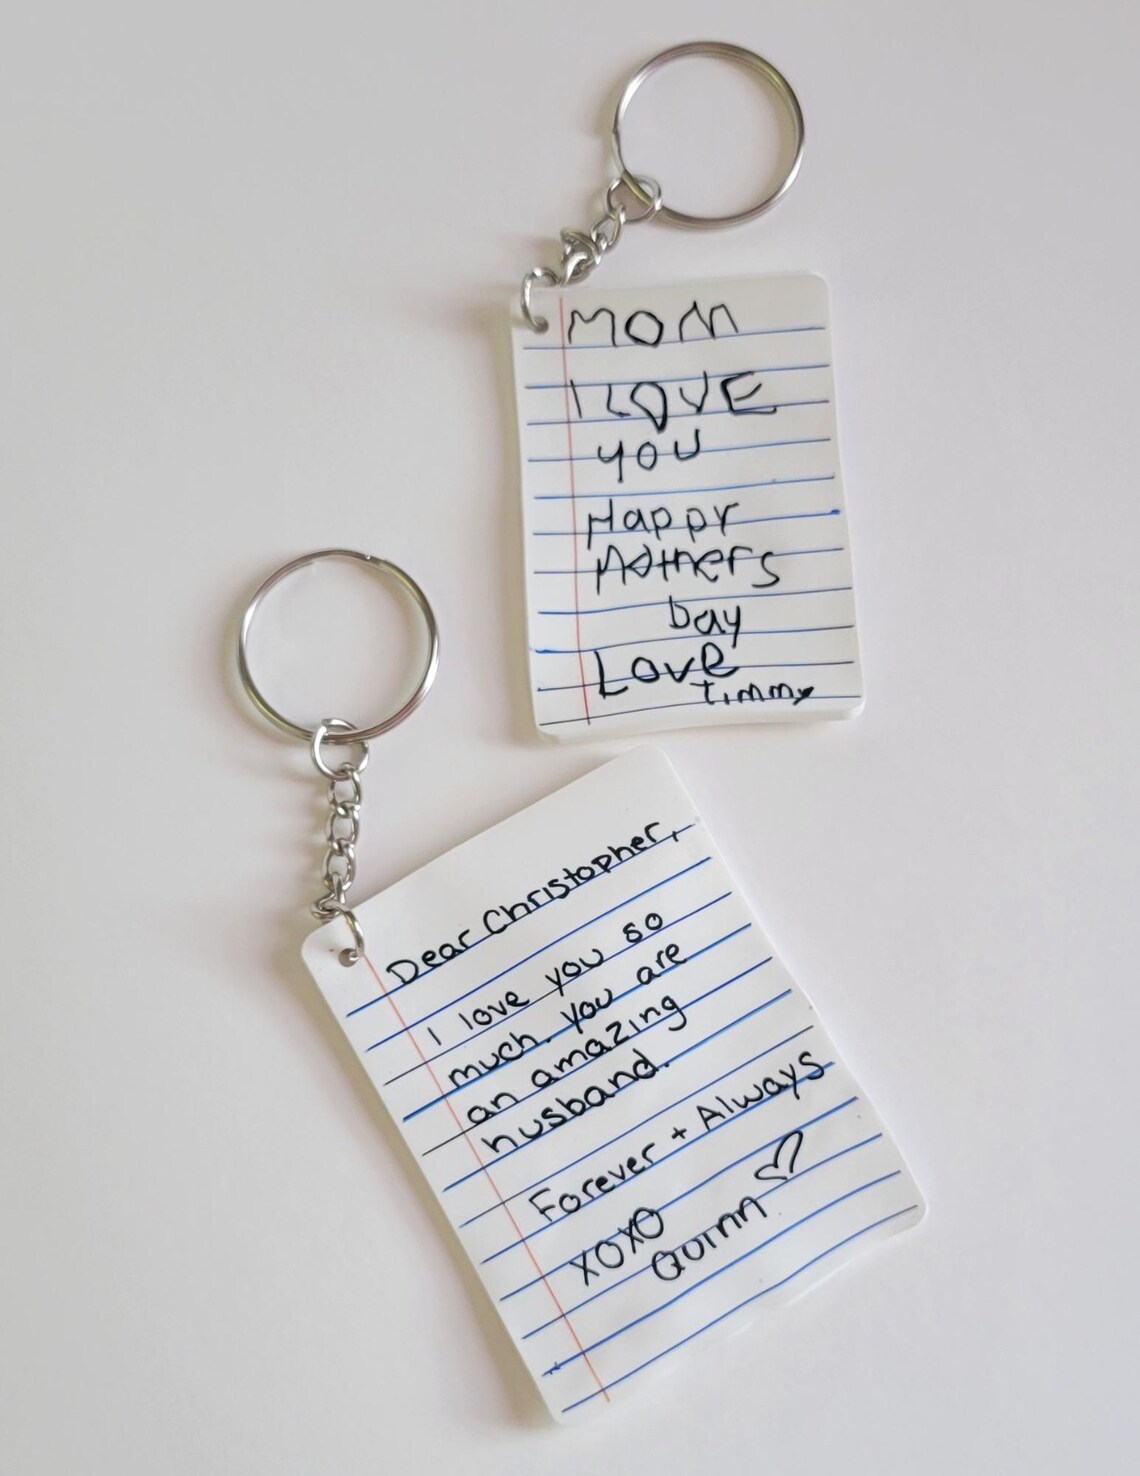 MOM
I LOVE
you
Happy
Mothers
Day
Love
Timmy
Dear Christopher,
I love you so
much. You are
an amazing
husband.
Forever + Always
XOXO
Quinn ♡